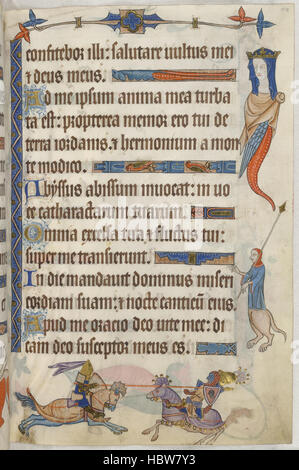 confitebor illi: salutare vultus mei
& deus meus.
Ad me ipsum anima mea turba
ta est: propterea memor ero tui de
terra iordanis & hermonium a mon
te modico.
Abyssus abyssum invocat: in vo
ce catharactarum tuarum.
Omnia excelsa tua & fluctus tui:
super me transierunt.
In die mandavit dominus miseri
cordiam suam: & nocte canticum eius.
Apud me oracio deo vite mee: di
cam deo susceptor meus es.
alamy
Image ID: HBW7Y3
www.alamy.com